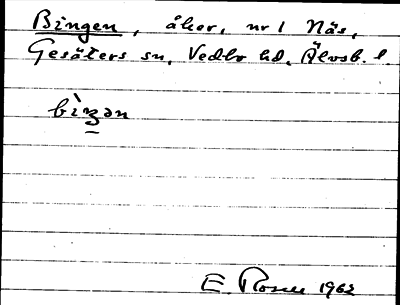 Bingen, åker, nr 1 Näs,
Gesäters sn, Vedbo hd, Älvsb. l.
bìŋən
E Rosen 1962